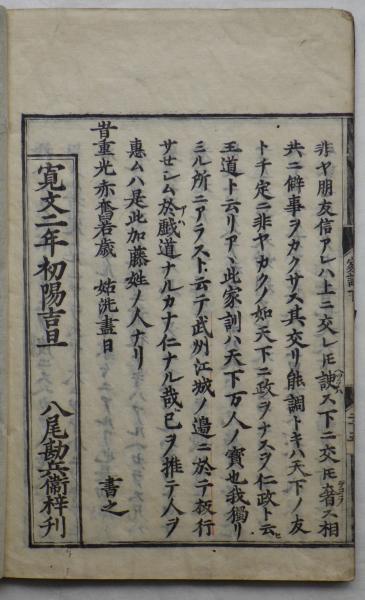 非ヤ朋友信アレハ上ニ交レㇳモ諛ス下ニ交ㇳモ著ス相
共ニ僻事ヲカクサス其交リ能調トキハ天下ノ友
トチ定ニ非ヤカクノ如天下ニ政ヲナスヲ仁政ト云ヒ
王道ト云リア、此家訓ハ天下万人ノ寶也我獨リ
ミル所ニアラスト云テ武州江城ノ邉ニ於テ板行
サセシム於戯道ナルカナ仁ナル哉已ヲ推テ人ヲ
惠ムハ是此加藤姓ノ人ナリ
旹重光赤奮若歳 姑洗盡日 書之
寛文二年初陽吉旦
八尾勘兵衞梓刊